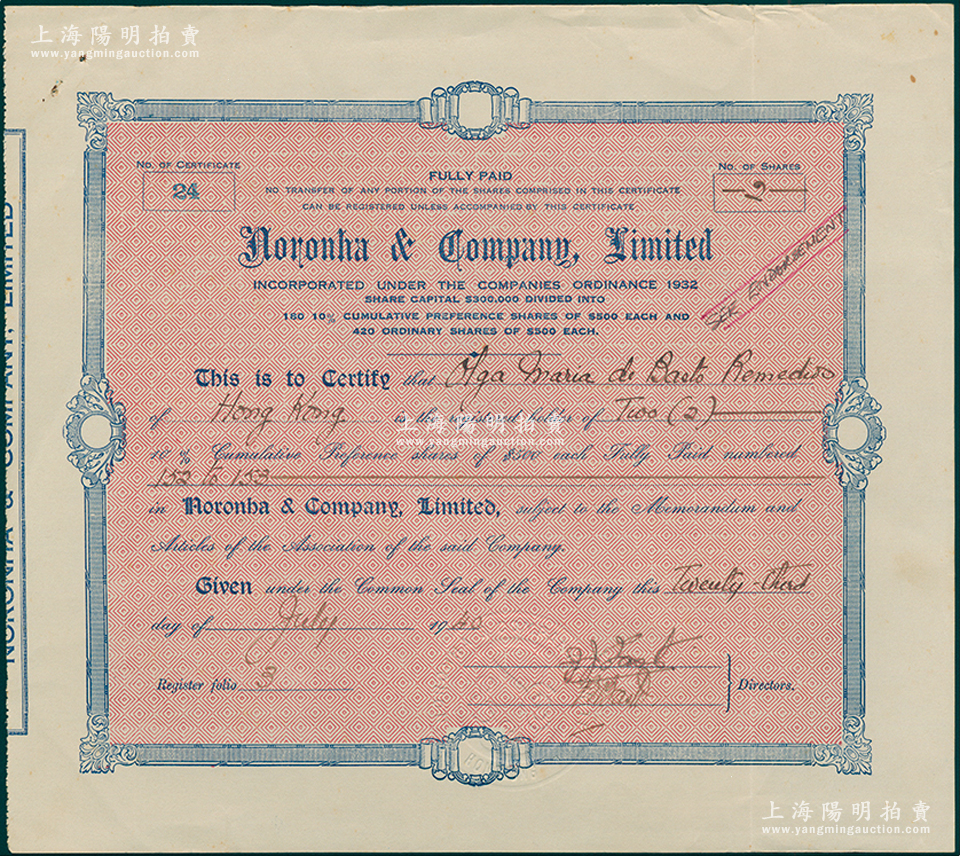 上海陽明拍賣
www.yangmingauction.com
NORONHA & COMPANY, LIMITED
No. of Certificate
24
FULLY PAID
NO TRANSFER OF ANY PORTION OF THE SHARES COMPRISED IN THIS CERTIFICATE
CAN BE REGISTERED UNLESS ACCOMPANIED BY THIS CERTIFICATE
No. of Shares
2
Noronha & Company, Limited
INCORPORATED UNDER THE COMPANIES ORDINANCE 1932
SHARE CAPITAL $300,000 DIVIDED INTO
180 10% CUMULATIVE PREFERENCE SHARES OF $500 EACH AND
420 ORDINARY SHARES OF $500 EACH.
SEE ENDORSEMENT
This is to Certify that Olga Maria de Basto Remedios
of Hong Kong is the registered holder of Two (2)
上海陽明拍賣
www.yangmingauction.com
10% Cumulative Preference shares of $500 each Fully Paid numbered
152 to 153
in Noronha & Company, Limited, subject to the Memorandum and
Articles of the Association of the said Company.
Given under the Common Seal of the Company this Twenty-third
day of July 1940
Register folio 3
Directors.
上海陽明拍賣
www.yangmingauction.com